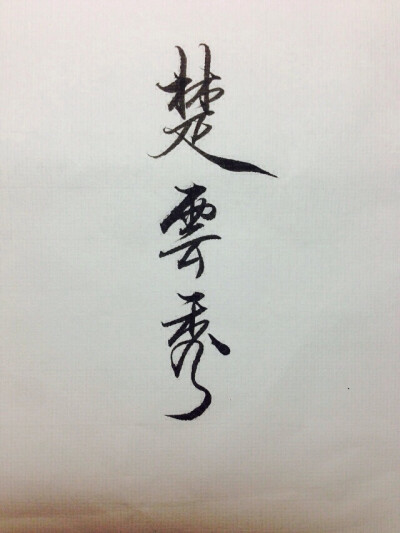 楚雲秀